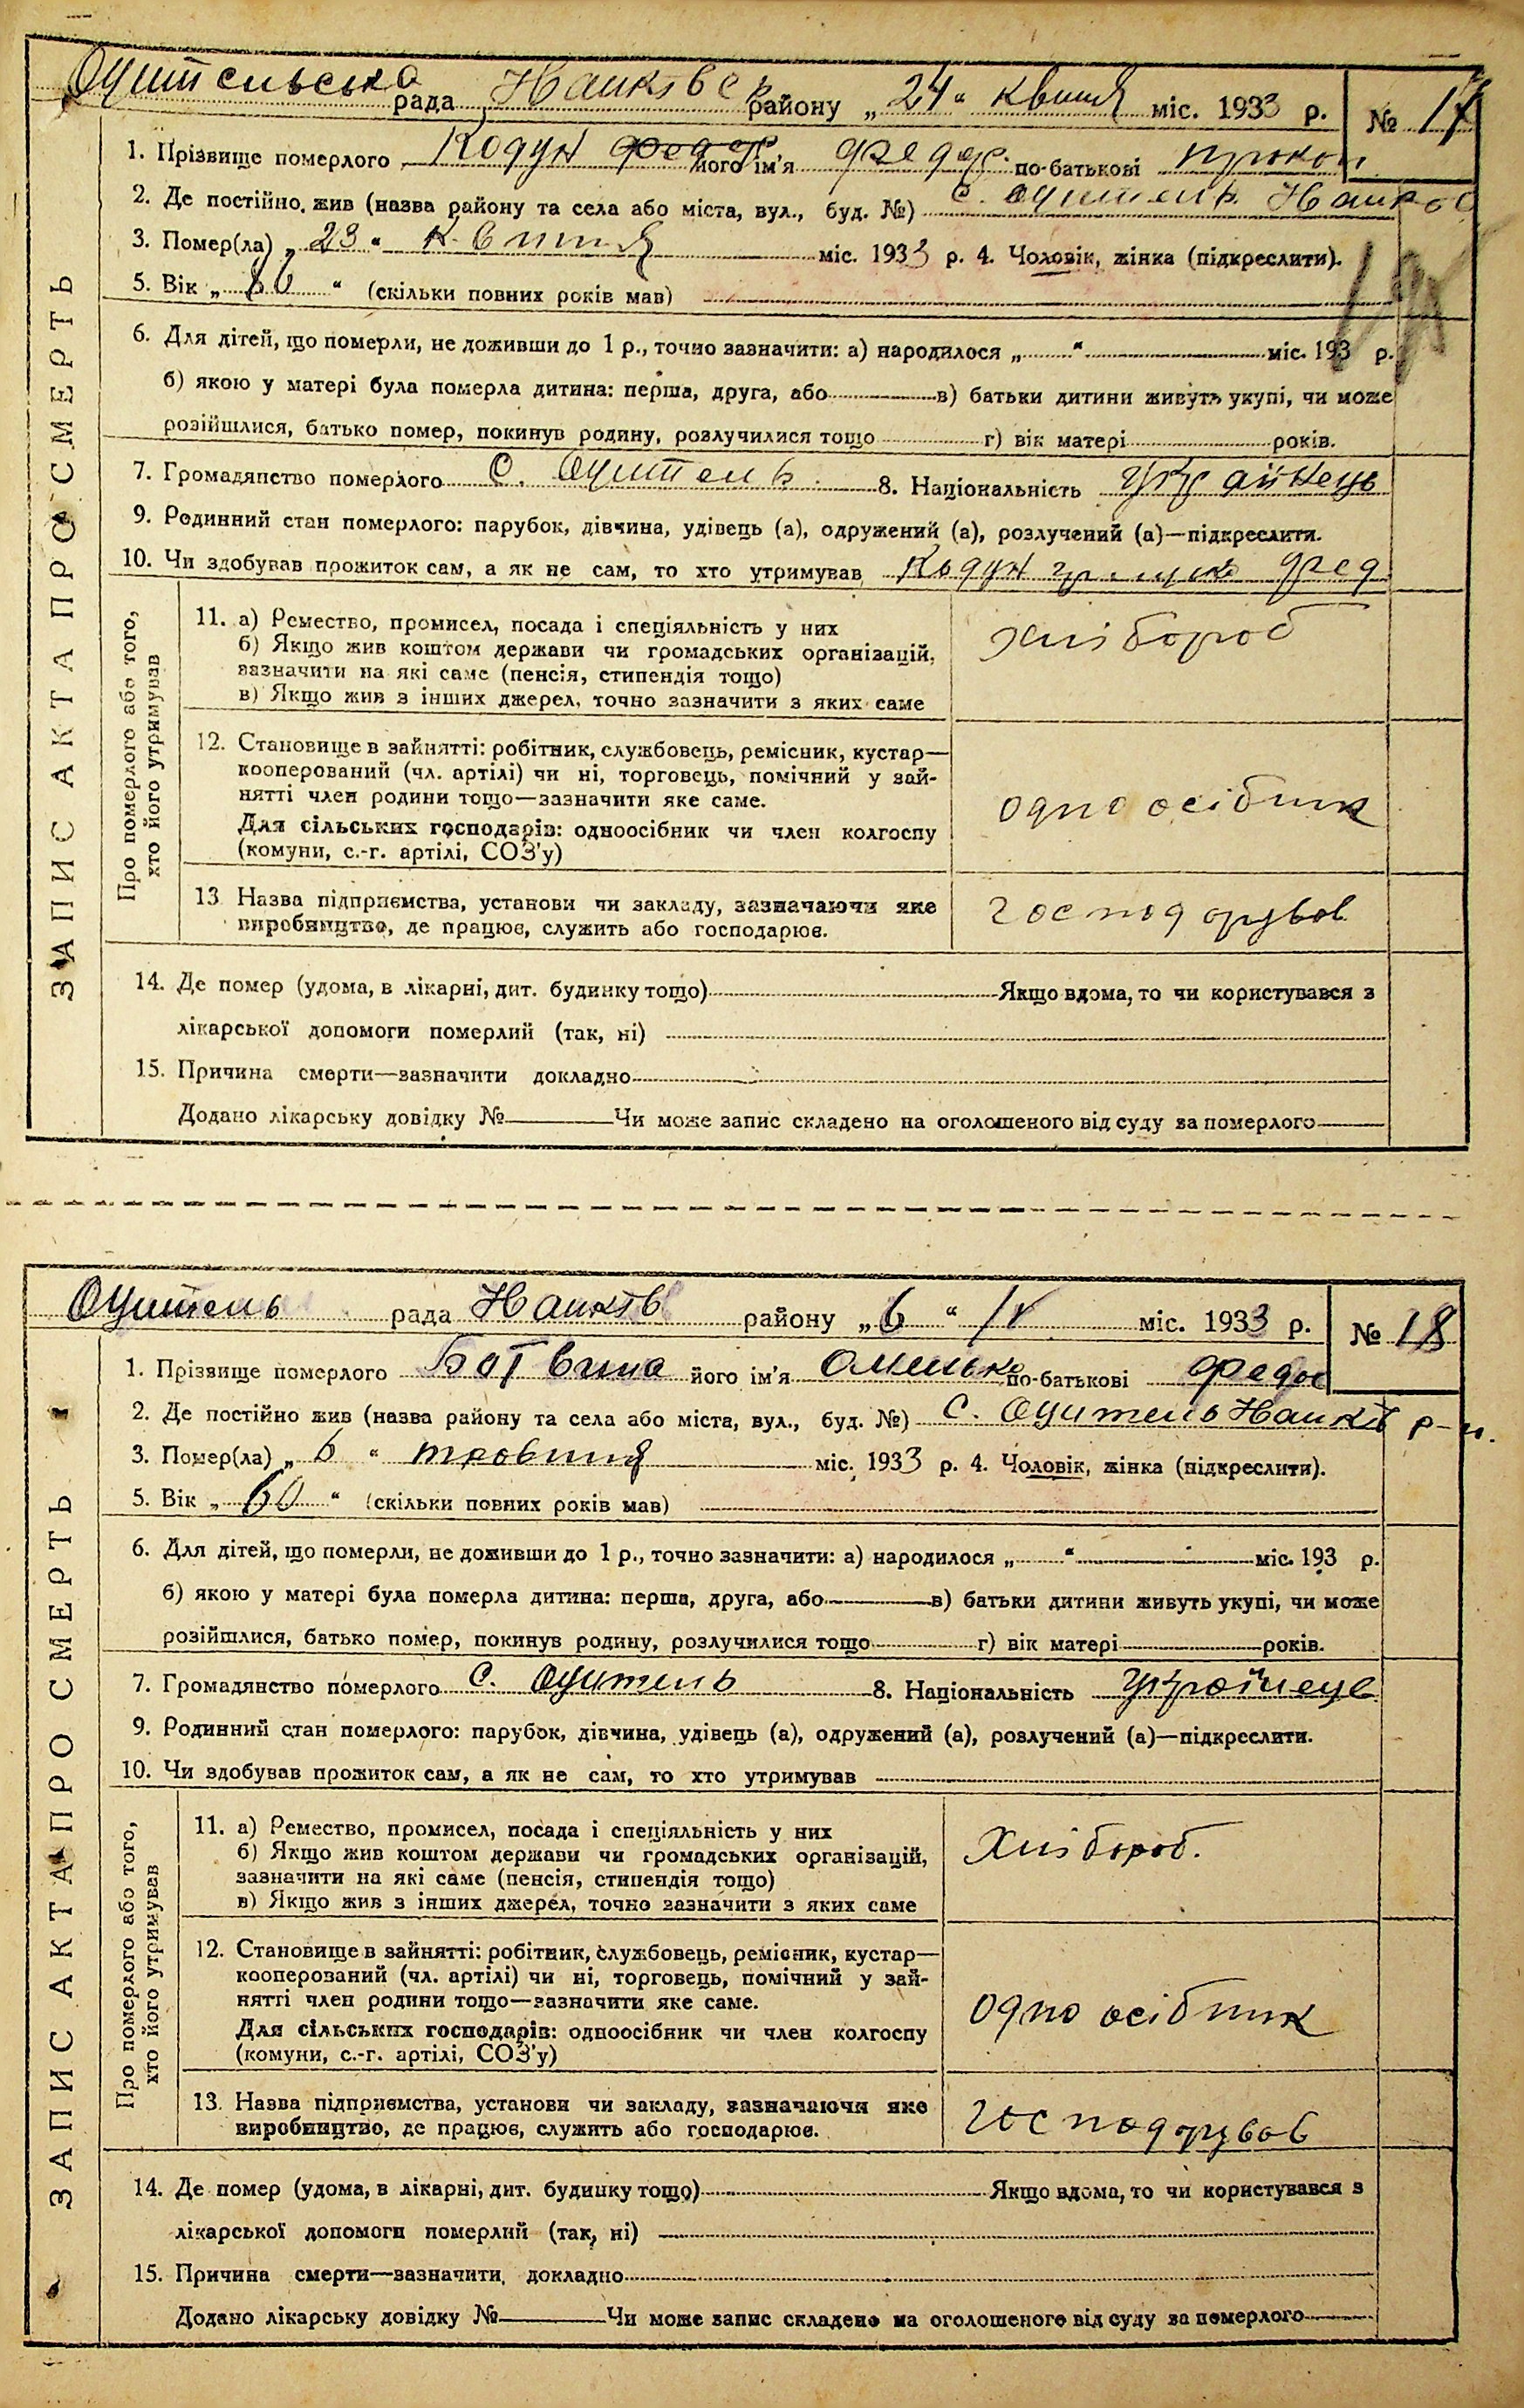 Оцительська рада Нанківс району „24“ квитня міс. 1933 р. № 17
1. Прізвище померлого Кодун його ім'я Федор по-батькові прокоп
2. Де постійно жив (назва району та села або міста, вул., буд. №) с. Оцитель Нанков
3. Помер(ла) „23“ квитня міс. 1933 р. 4. Чоловік, жінка (підкреслити).
5. Вік „80“ (скільки повних років мав)
6. Для дітей, що померли, не доживши до 1 р., точно зазначити: а) народилося „ “ міс. 193 р.
б) якою у матері була померла дитина: перша, друга, або в) батьки дитини живуть укупі, чи може
розійшлися, батько помер, покинув родину, розлучилися тощо г) вік матері років.
7. Громадянство померлого С. Оцитель 8. Національність Украйнець
9. Родинний стан померлого: парубок, дівчина, удівець (а), одружений (а), розлучений (а)—підкреслити.
10. Чи здобував прожиток сам, а як не сам, то хто утримував Кодун фед
ЗАПИС АКТА ПРО СМЕРТЬ
Про померлого або того,
хто його утримував
11. а) Ремество, промисел, посада і спеціяльність у них
б) Якщо жив коштом держави чи громадських організацій,
зазначити на які саме (пенсія, стипендія тощо)
в) Якщо жив з інших джерел, точно зазначити з яких саме
хлібороб
12. Становище в зайнятті: робітник, службовець, ремісник, кустар—
кооперований (чл. артілі) чи ні, торговець, помічний у зай-
нятті член родини тощо—зазначити яке саме.
Для сільських господарів: одноосібник чи член колгоспу
(комуни, с.-г. артілі, СОЗ'у)
одноосібник
13. Назва підприємства, установи чи закладу, зазначаючи яке
виробництво, де працює, служить або господарює.
господорував
14. Де помер (удома, в лікарні, дит. будинку тощо) Якщо вдома, то чи користувався з
лікарської допомоги померлий (так, ні)
15. Причина смерти—зазначити докладно
Додано лікарську довідку № Чи може запис складено на оголошеного від суду за померлого
Оцитель рада Нанків району „6“ IV міс. 1933 р. № 18
1. Прізвище померлого Ботвина його ім'я Омелько по-батькові Федос
2. Де постійно жив (назва району та села або міста, вул., буд. №) С. Оцитель Нанків р-н.
3. Помер(ла) „6“ травиня міс. 1933 р. 4. Чоловік, жінка (підкреслити).
5. Вік „60“ (скільки повних років мав)
6. Для дітей, що померли, не доживши до 1 р., точно зазначити: а) народилося „ “ міс. 193 р.
б) якою у матері була померла дитина: перша, друга, або в) батьки дитини живуть укупі, чи може
розійшлися, батько помер, покинув родину, розлучилися тощо г) вік матері років.
7. Громадянство померлого С. Оцитель 8. Національність Украйнець
9. Родинний стан померлого: парубок, дівчина, удівець (а), одружений (а), розлучений (а)—підкреслити.
10. Чи здобував прожиток сам, а як не сам, то хто утримував
ЗАПИС АКТА ПРО СМЕРТЬ
Про померлого або того,
хто його утримував
11. а) Ремество, промисел, посада і спеціяльність у них
б) Якщо жив коштом держави чи громадських організацій,
зазначити на які саме (пенсія, стипендія тощо)
в) Якщо жив з інших джерел, точно зазначити з яких саме
Хлібороб.
12. Становище в зайнятті: робітник, службовець, ремісник, кустар—
кооперований (чл. артілі) чи ні, торговець, помічний у зай-
нятті член родини тощо—зазначити яке саме.
Для сільських господарів: одноосібник чи член колгоспу
(комуни, с.-г. артілі, СОЗ'у)
одно осібник
13. Назва підприємства, установи чи закладу, зазначаючи яке
виробництво, де працює, служить або господарює.
господорував
14. Де помер (удома, в лікарні, дит. будинку тощо) Якщо вдома, то чи користувався з
лікарської допомоги померлий (так, ні)
15. Причина смерти—зазначити докладно
Додано лікарську довідку № Чи може запис складено на оголошеного від суду за померлого